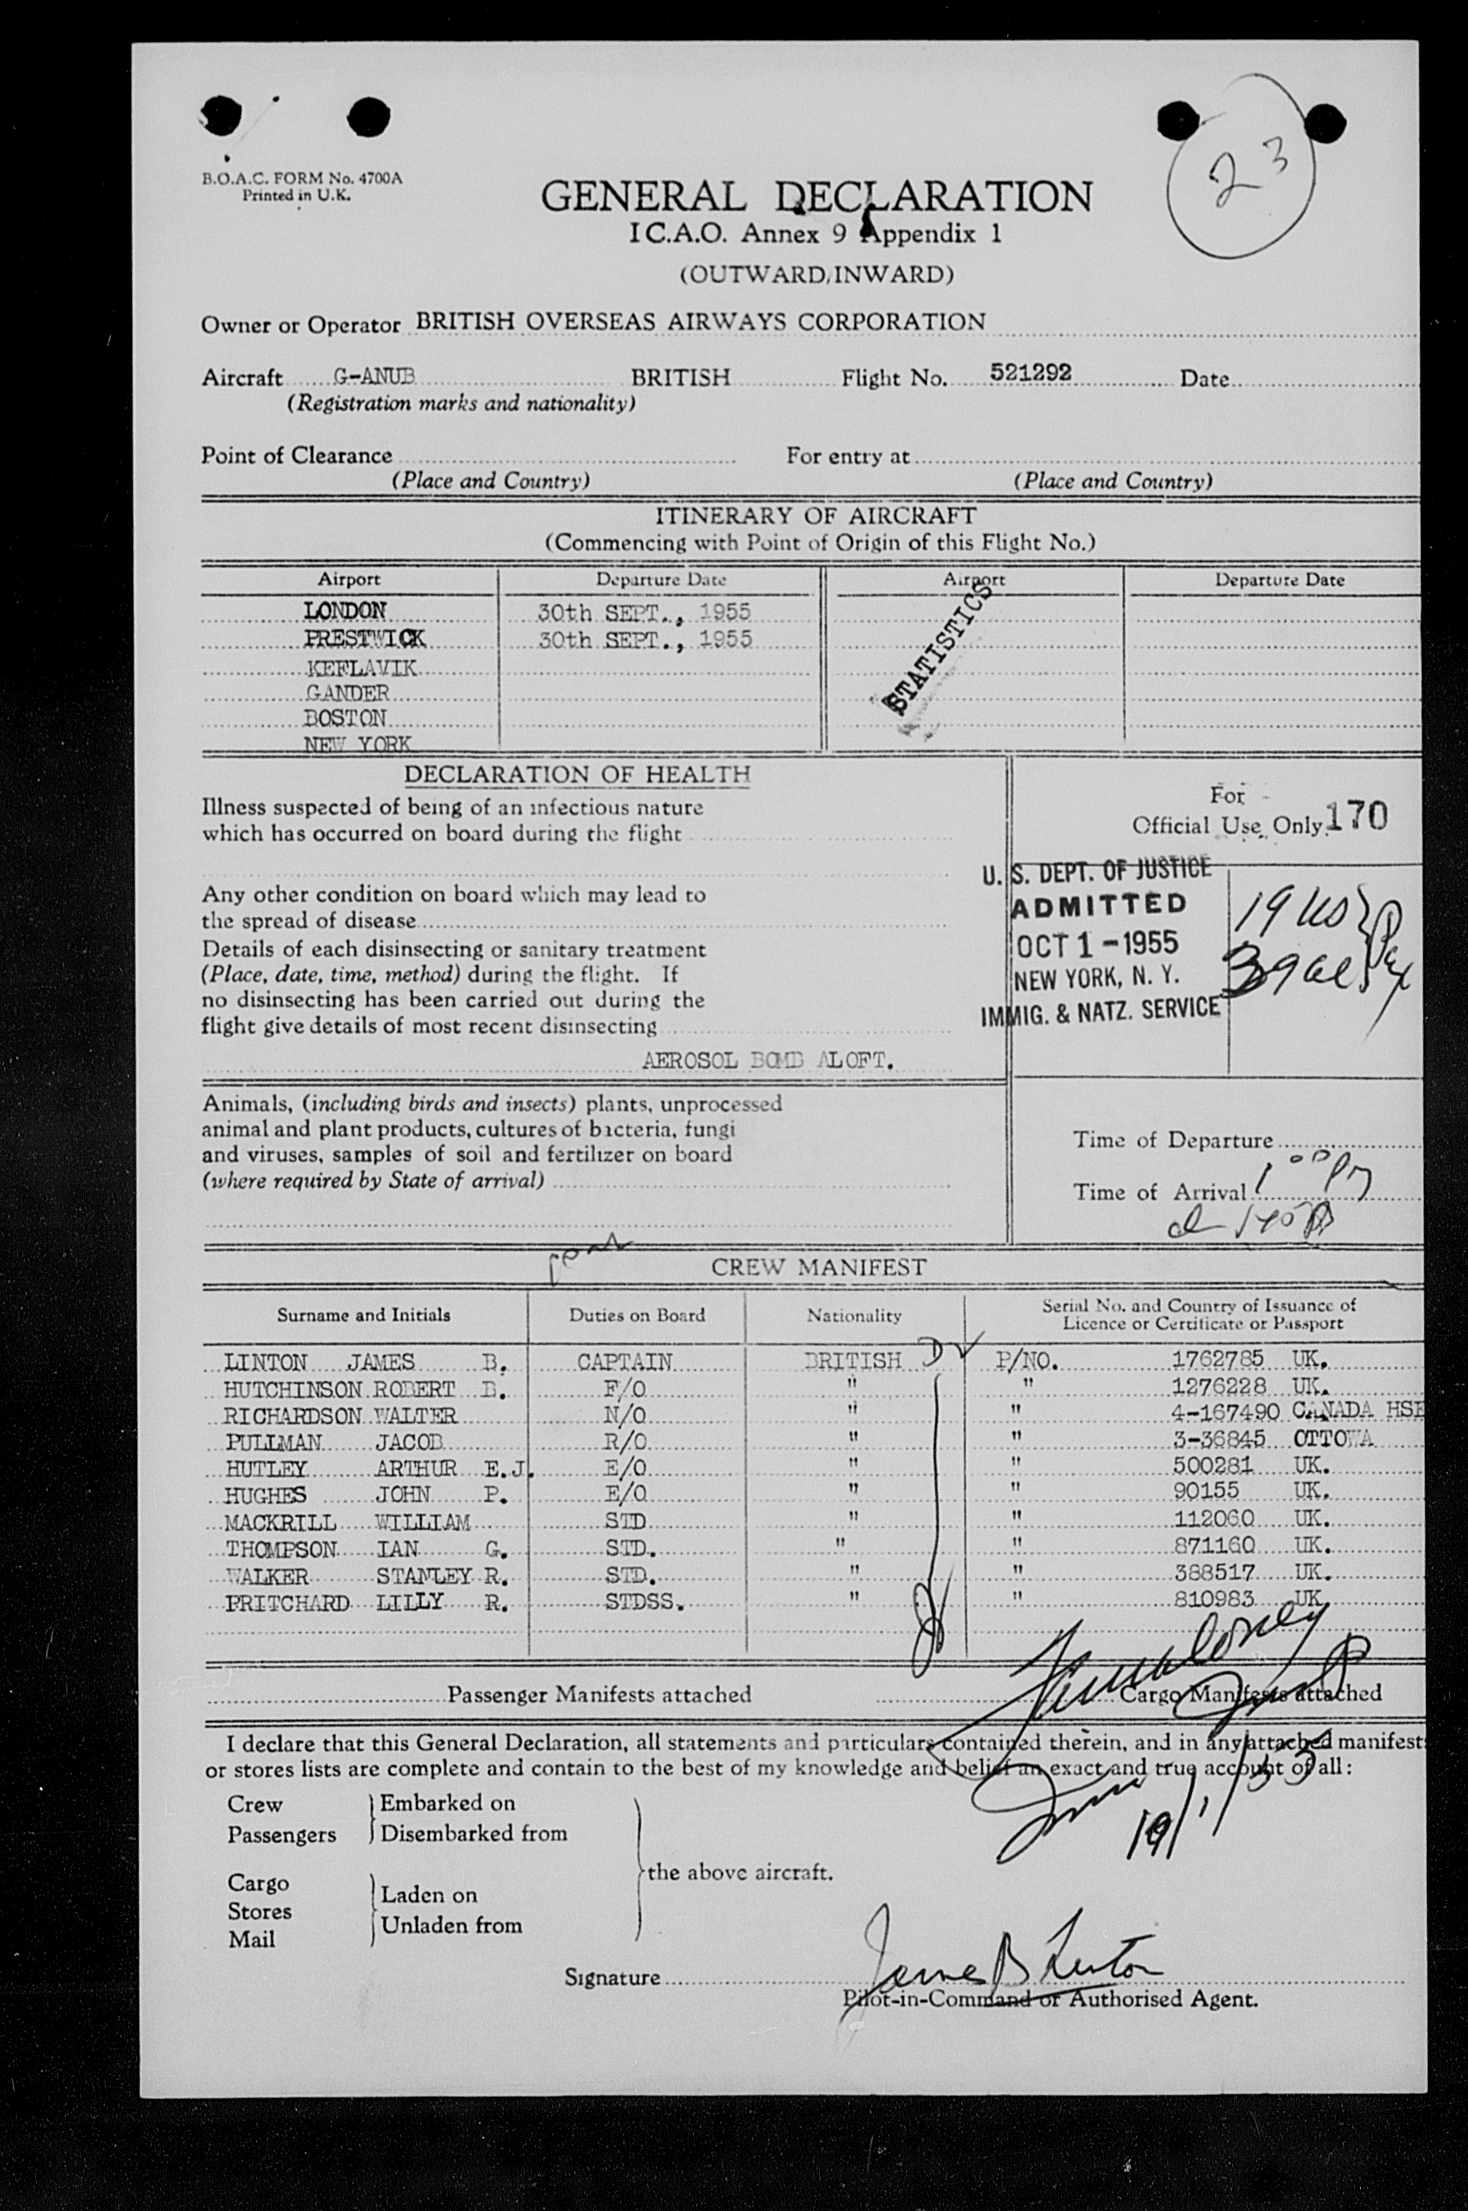 23
B.O.A.C. FORM No. 4700A
Printed in U.K.
GENERAL DECLARATION
I C.A.O. Annex 9 Appendix 1
(OUTWARD, INWARD)
Owner or Operator BRITISH OVERSEAS AIRWAYS CORPORATION
Aircraft G-ANUB BRITISH Flight No. 521292 Date
(Registration marks and nationality)
Point of Clearance For entry at
(Place and Country) (Place and Country)
ITINERARY OF AIRCRAFT
(Commencing with Point of Origin of this Flight No.)
Airport Departure Date Airport Departure Date
LONDON 30th SEPT., 1955
PRESTWICK 30th SEPT., 1955
KEFLAVIK
GANDER
BOSTON
NEW YORK
STATISTICS
DECLARATION OF HEALTH
Illness suspected of being of an infectious nature
which has occurred on board during the flight
Any other condition on board which may lead to
the spread of disease
Details of each disinsecting or sanitary treatment
(Place, date, time, method) during the flight. If
no disinsecting has been carried out during the
flight give details of most recent disinsecting
AEROSOL BOMB ALOFT.
For
Official Use Only 170
U.S. DEPT. OF JUSTICE
ADMITTED
OCT 1 - 1955
NEW YORK, N. Y.
IMMIG. & NATZ. SERVICE
19 US
39 al
Pax
Animals, (including birds and insects) plants, unprocessed
animal and plant products, cultures of bacteria, fungi
and viruses, samples of soil and fertilizer on board
(where required by State of arrival)
Time of Departure
Time of Arrival 1 00 PM
CREW MANIFEST
Surname and Initials Duties on Board Nationality Serial No. and Country of Issuance of
Licence or Certificate or Passport
LINTON JAMES B. CAPTAIN BRITISH P/NO. 1762785 UK.
HUTCHINSON ROBERT B. F/O " " 1276228 UK.
RICHARDSON WALTER N/O " " 4-167490 CANADA HSE
PULLMAN JACOB R/O " " 3-36845 OTTOWA
HUTLEY ARTHUR E.J. E/O " " 500281 UK.
HUGHES JOHN P. E/O " " 90155 UK.
MACKRILL WILLIAM STD " " 112060 UK.
THOMPSON IAN G. STD. " " 871160 UK.
WALKER STANLEY R. STD. " " 388517 UK.
PRITCHARD LILLY R. STDSS. " " 810983 UK
Passenger Manifests attached Cargo Manifests attached
I declare that this General Declaration, all statements and particulars contained therein, and in any attached manifest
or stores lists are complete and contain to the best of my knowledge and belief an exact and true account of all:
Crew Embarked on
Passengers Disembarked from
the above aircraft.
Cargo Laden on
Stores
Mail Unladen from
Signature James B Linton
Pilot-in-Command or Authorised Agent.